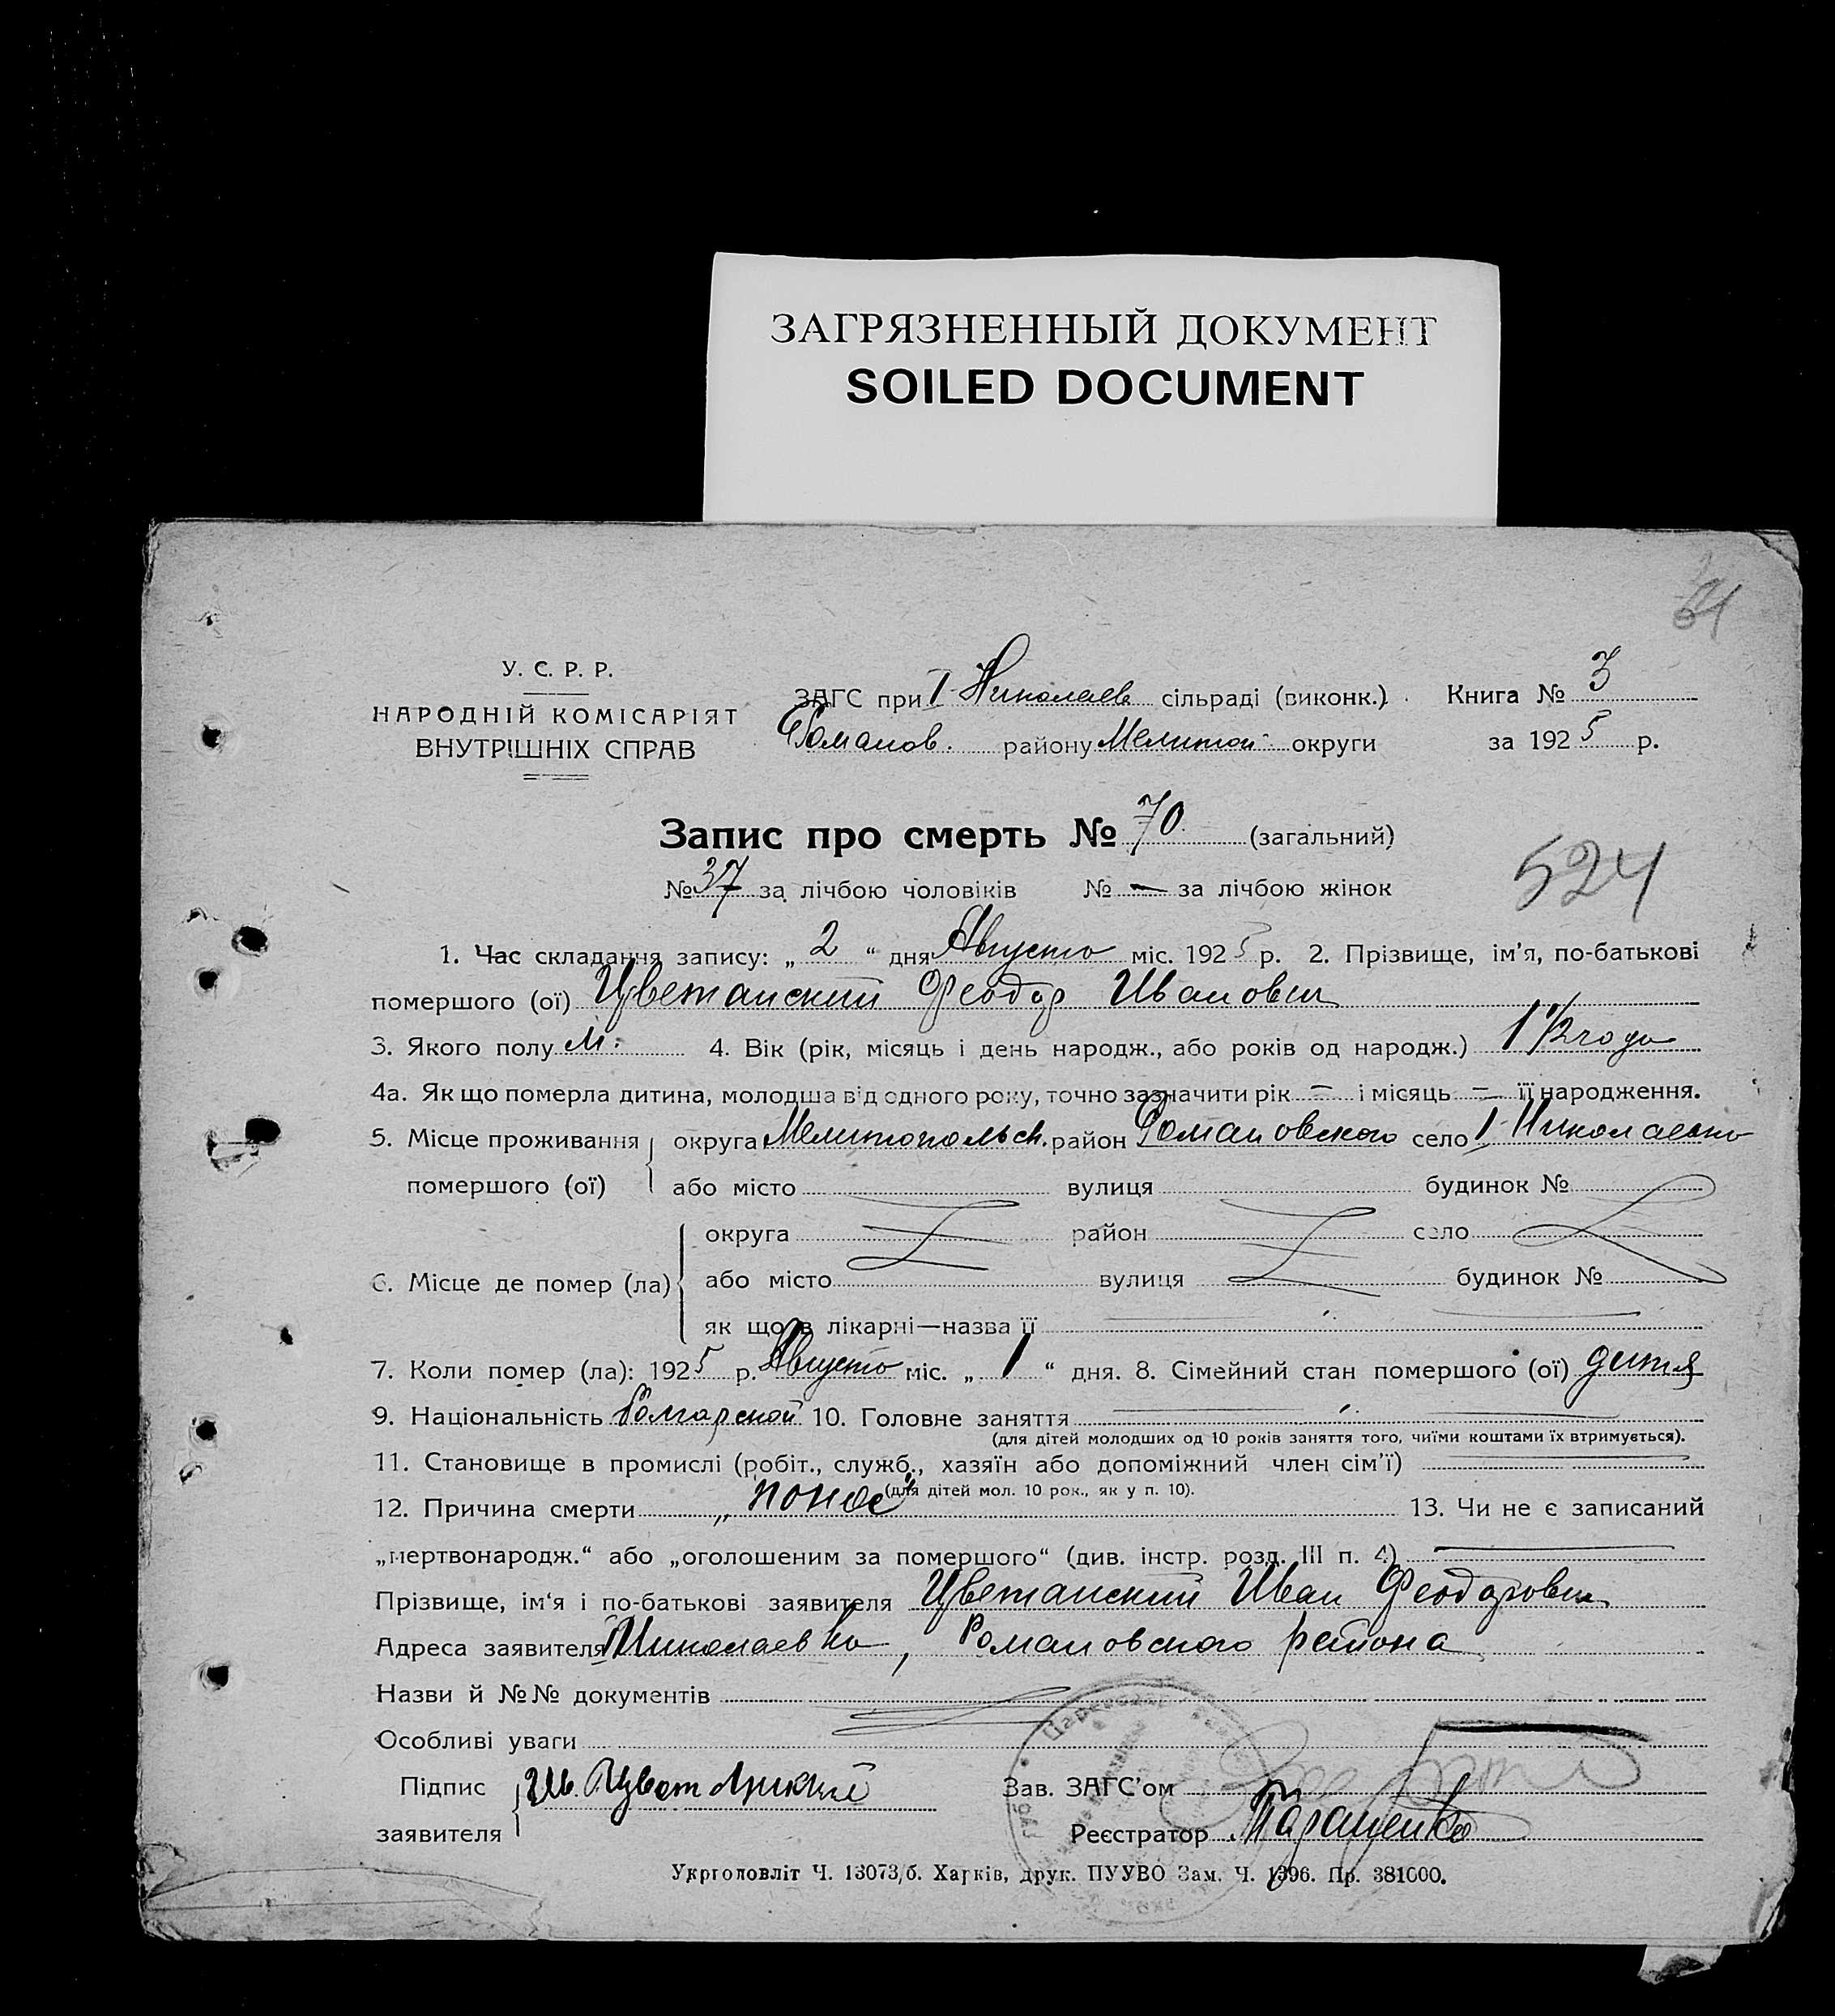 ЗАГРЯЗНЕННЫЙ ДОКУМЕНТ
SOILED DOCUMENT
У. С. Р. Р.
НАРОДНІЙ КОМІСАРІЯТ
ВНУТРІШНІХ СПРАВ
ЗАГС при I Николаев сільраді (виконк.). Книга № 3
Романов. району Мелитоп округи за 1925 р.
Запис про смерть № 70 (загальний)
№ 37 за лічбою чоловіків № — за лічбою жінок
524
1. Час складання запису: „ 2 “ дня Августа міс. 1925 р. 2. Прізвище, ім'я, по-батькові
помершого (ої) Цветанский Феодор Иванович
3. Якого полу м. 4. Вік (рік, місяць і день народж., або років од народж.) 1 1/2 года
4а. Як що померла дитина, молодша від одного року, точно зазначити рік — і місяць — її народження.
5. Місце проживання округа Мелитопольск. район Романовского село I Николаевка
помершого (ої) або місто вулиця будинок №
округа район село
6. Місце де помер (ла) або місто вулиця будинок №
як що в лікарні—назва її
7. Коли помер (ла): 1925 р. Августа міс. „ 1 “ дня. 8. Сімейний стан помершого (ої) дитя
9. Національність болгарской 10. Головне заняття
(для дітей молодших од 10 років заняття того, чиїми коштами їх втримується).
11. Становище в промислі (робіт., служб., хазяїн або допоміжний член сім'ї)
(для дітей мол. 10 рок., як у п. 10).
12. Причина смерти „понос“ 13. Чи не є записаний
„мертвонародж.“ або „оголошеним за помершого“ (див. інстр. розд. III п. 4)
Прізвище, ім'я і по-батькові заявителя Цветанский Иван Феодорович
Адреса заявителя I Николаевка, Романовского района
Назви й №№ документів
Особливі уваги
Підпис Ив. Цветанский Зав. ЗАГС'ом
заявителя Реєстратор Таращенко
Укрголовліт Ч. 13073/б. Харків, друк. ПУУВО Зам. Ч. 1396. Пр. 381000.